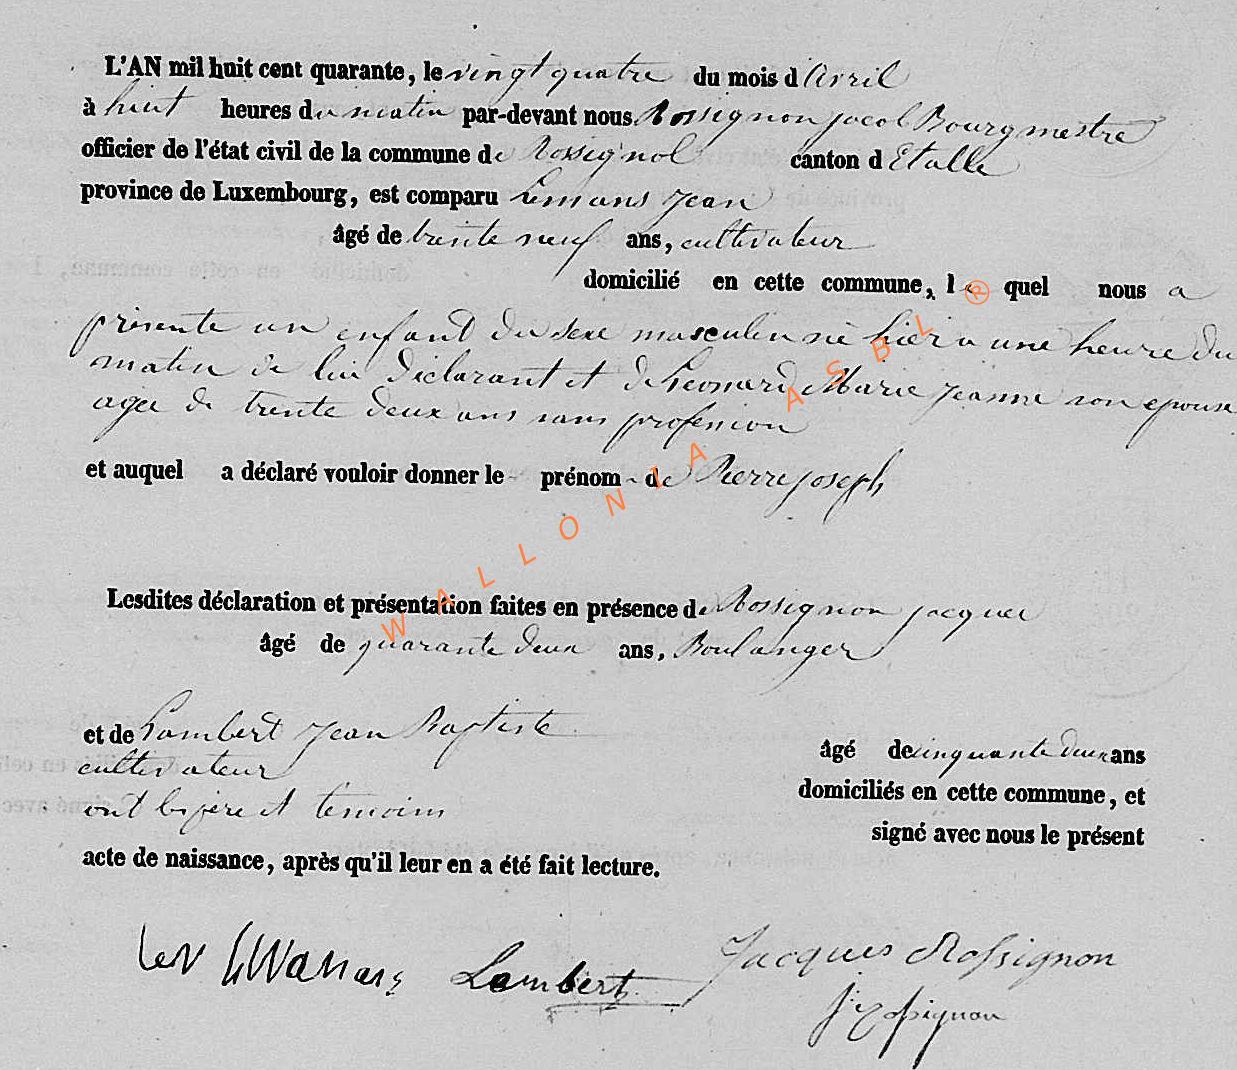 L'AN mil huit cent quarante, le vingt quatre du mois d'avril
à huit heures du matin par-devant nous Rossignon jacob Bourgmestre
officier de l'état civil de la commune de Rossignol canton d'Etalle
province de Luxembourg, est comparu Lemans jean
âgé de trente neuf ans, cultivateur
domicilié en cette commune, lequel nous a
présenté un enfant du sexe masculin né hier a une heure du
matin de lui déclarant et de Leonard Marie jeanne son epouse
agee de trente deux ans sans profession
et auquel a déclaré vouloir donner le prénom de Pierre joseph
Lesdites déclaration et présentation faites en présence de Rossignon jacques
âgé de quarante deux ans, Boulanger
et de Lambert jean Baptiste âgé de cinquante deux ans
cultivateur domiciliés en cette commune, et
ont les père et temoins signé avec nous le présent
acte de naissance, après qu'il leur en a été fait lecture.
Lambert Jacques Rossignon
Rossignon
WALLONIA ASBL ®